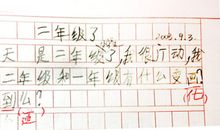 二年级了
2008.9.3.
天是二年级了,我很广动,我
二年级和一年级有什么变画?
到么?